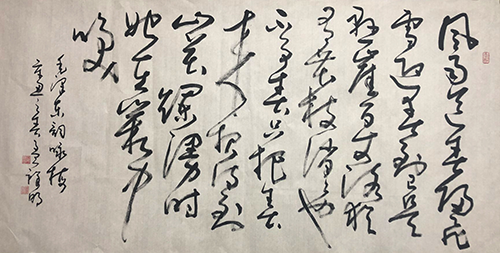 风雨送春归飞
雪迎春到已是
悬崖百丈冰犹
有花枝俏俏也
不争春只把春
来报待到
山花烂漫时
她在丛中
笑
毛泽东词咏梅